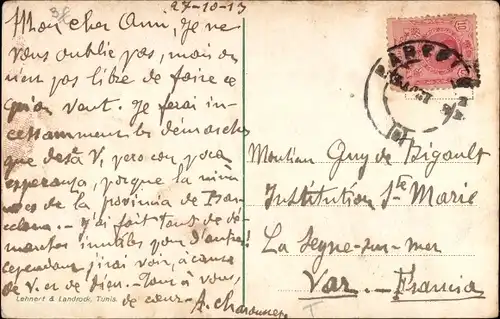 27-10-13
Mon cher Ami, Je ne
vous oublie pas, mais on
n'en pas libre de faire ce
qu'on veut. Je ferai in-
cessamment les démarches
que desea V, pero con poca
esperanza, porque la
de la provincia de Bar-
celona. - J'ai fait tant de dé-
marches inutiles pour d'autres!
Cependant j'irai voir, à cause
de V. et de Dieu. - Tout à vous,
de coeur. A.
Lehnert & Landrock, Tunis.
BARCELONA
Monsieur Guy de Bigault
Institution Ste Marie
La Seyne-sur-mer
Var. - Francia
T